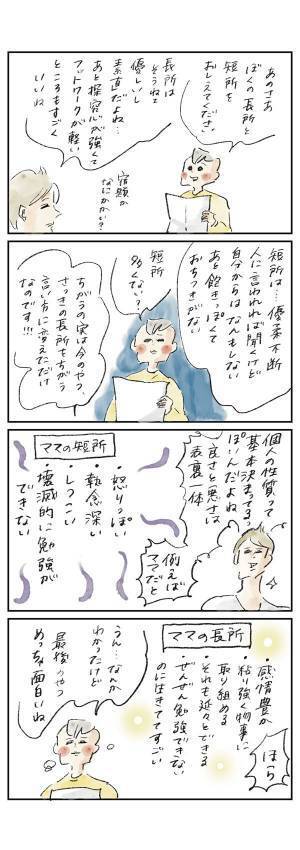 あのさあ
ぼくの長所と
短所を
おしえてください
長所は
そうねェ
優しいし
素直だよね…
あと探究心が強くて
フットワークが軽い
ところもすごく
いいね
宿題か
なにかかい?
短所は…優柔不断
人に言われれば聞くけど
自分からはなんもしない
あと飽きっぽくて
おちつきがない
短所
多くない?
ちがうの実は今のやつ、
さっきの長所をちがう
言い方に変えただけ
なのです!!!
個人の性質って
基本決まってるっ
ぽいんだよね
良さと悪さは
表裏一体
例えば
ママだと
ママの短所
・怒りっぽい
・執念深い
・しつこい
・壊滅的に勉強が
できない
ほら
ママの長所
・感情豊か
・粘り強く物事に
取り組める
・それも延々とできる
・ぜんぜん勉強できない
のに生きててすごい
うん…なんか
わかったけど
最後のやつ
めっちゃ面白いね